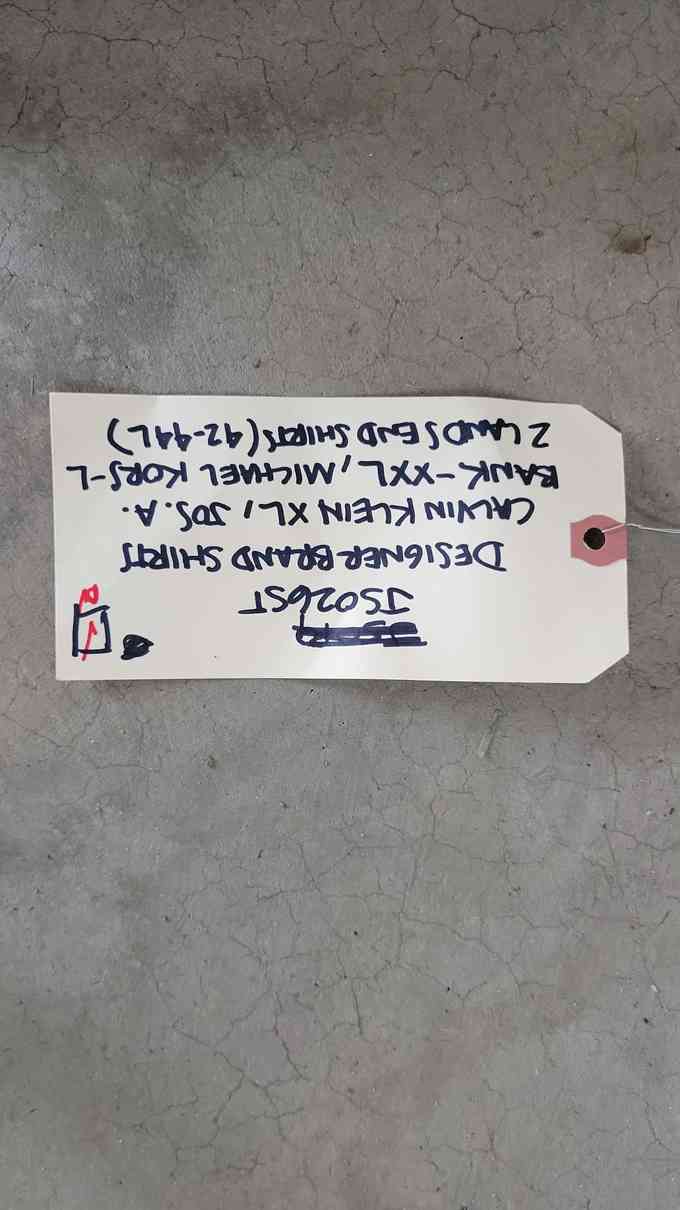 JS026ST
DESIGNER BRAND SHIRTS
CALVIN KLEIN XL, JOS. A.
BANK-XXL, MICHAEL KORS-L
2 LANDS END SHIRTS (42-44L)